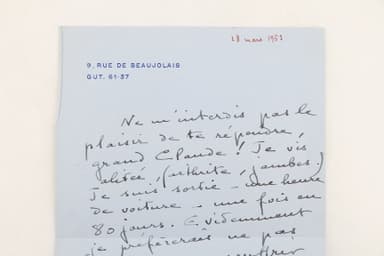 28 mars 1953
9, RUE DE BEAUJOLAIS
GUT. 61-37
Ne m'interdis pas le
plaisir de te répondre,
grand Claude ! Je vis
alitée, (arthrite, jambes.)
Je suis sortie – une heure
de voiture – une fois en
80 jours. Evidemment
je préférerais ne pas
souffrir